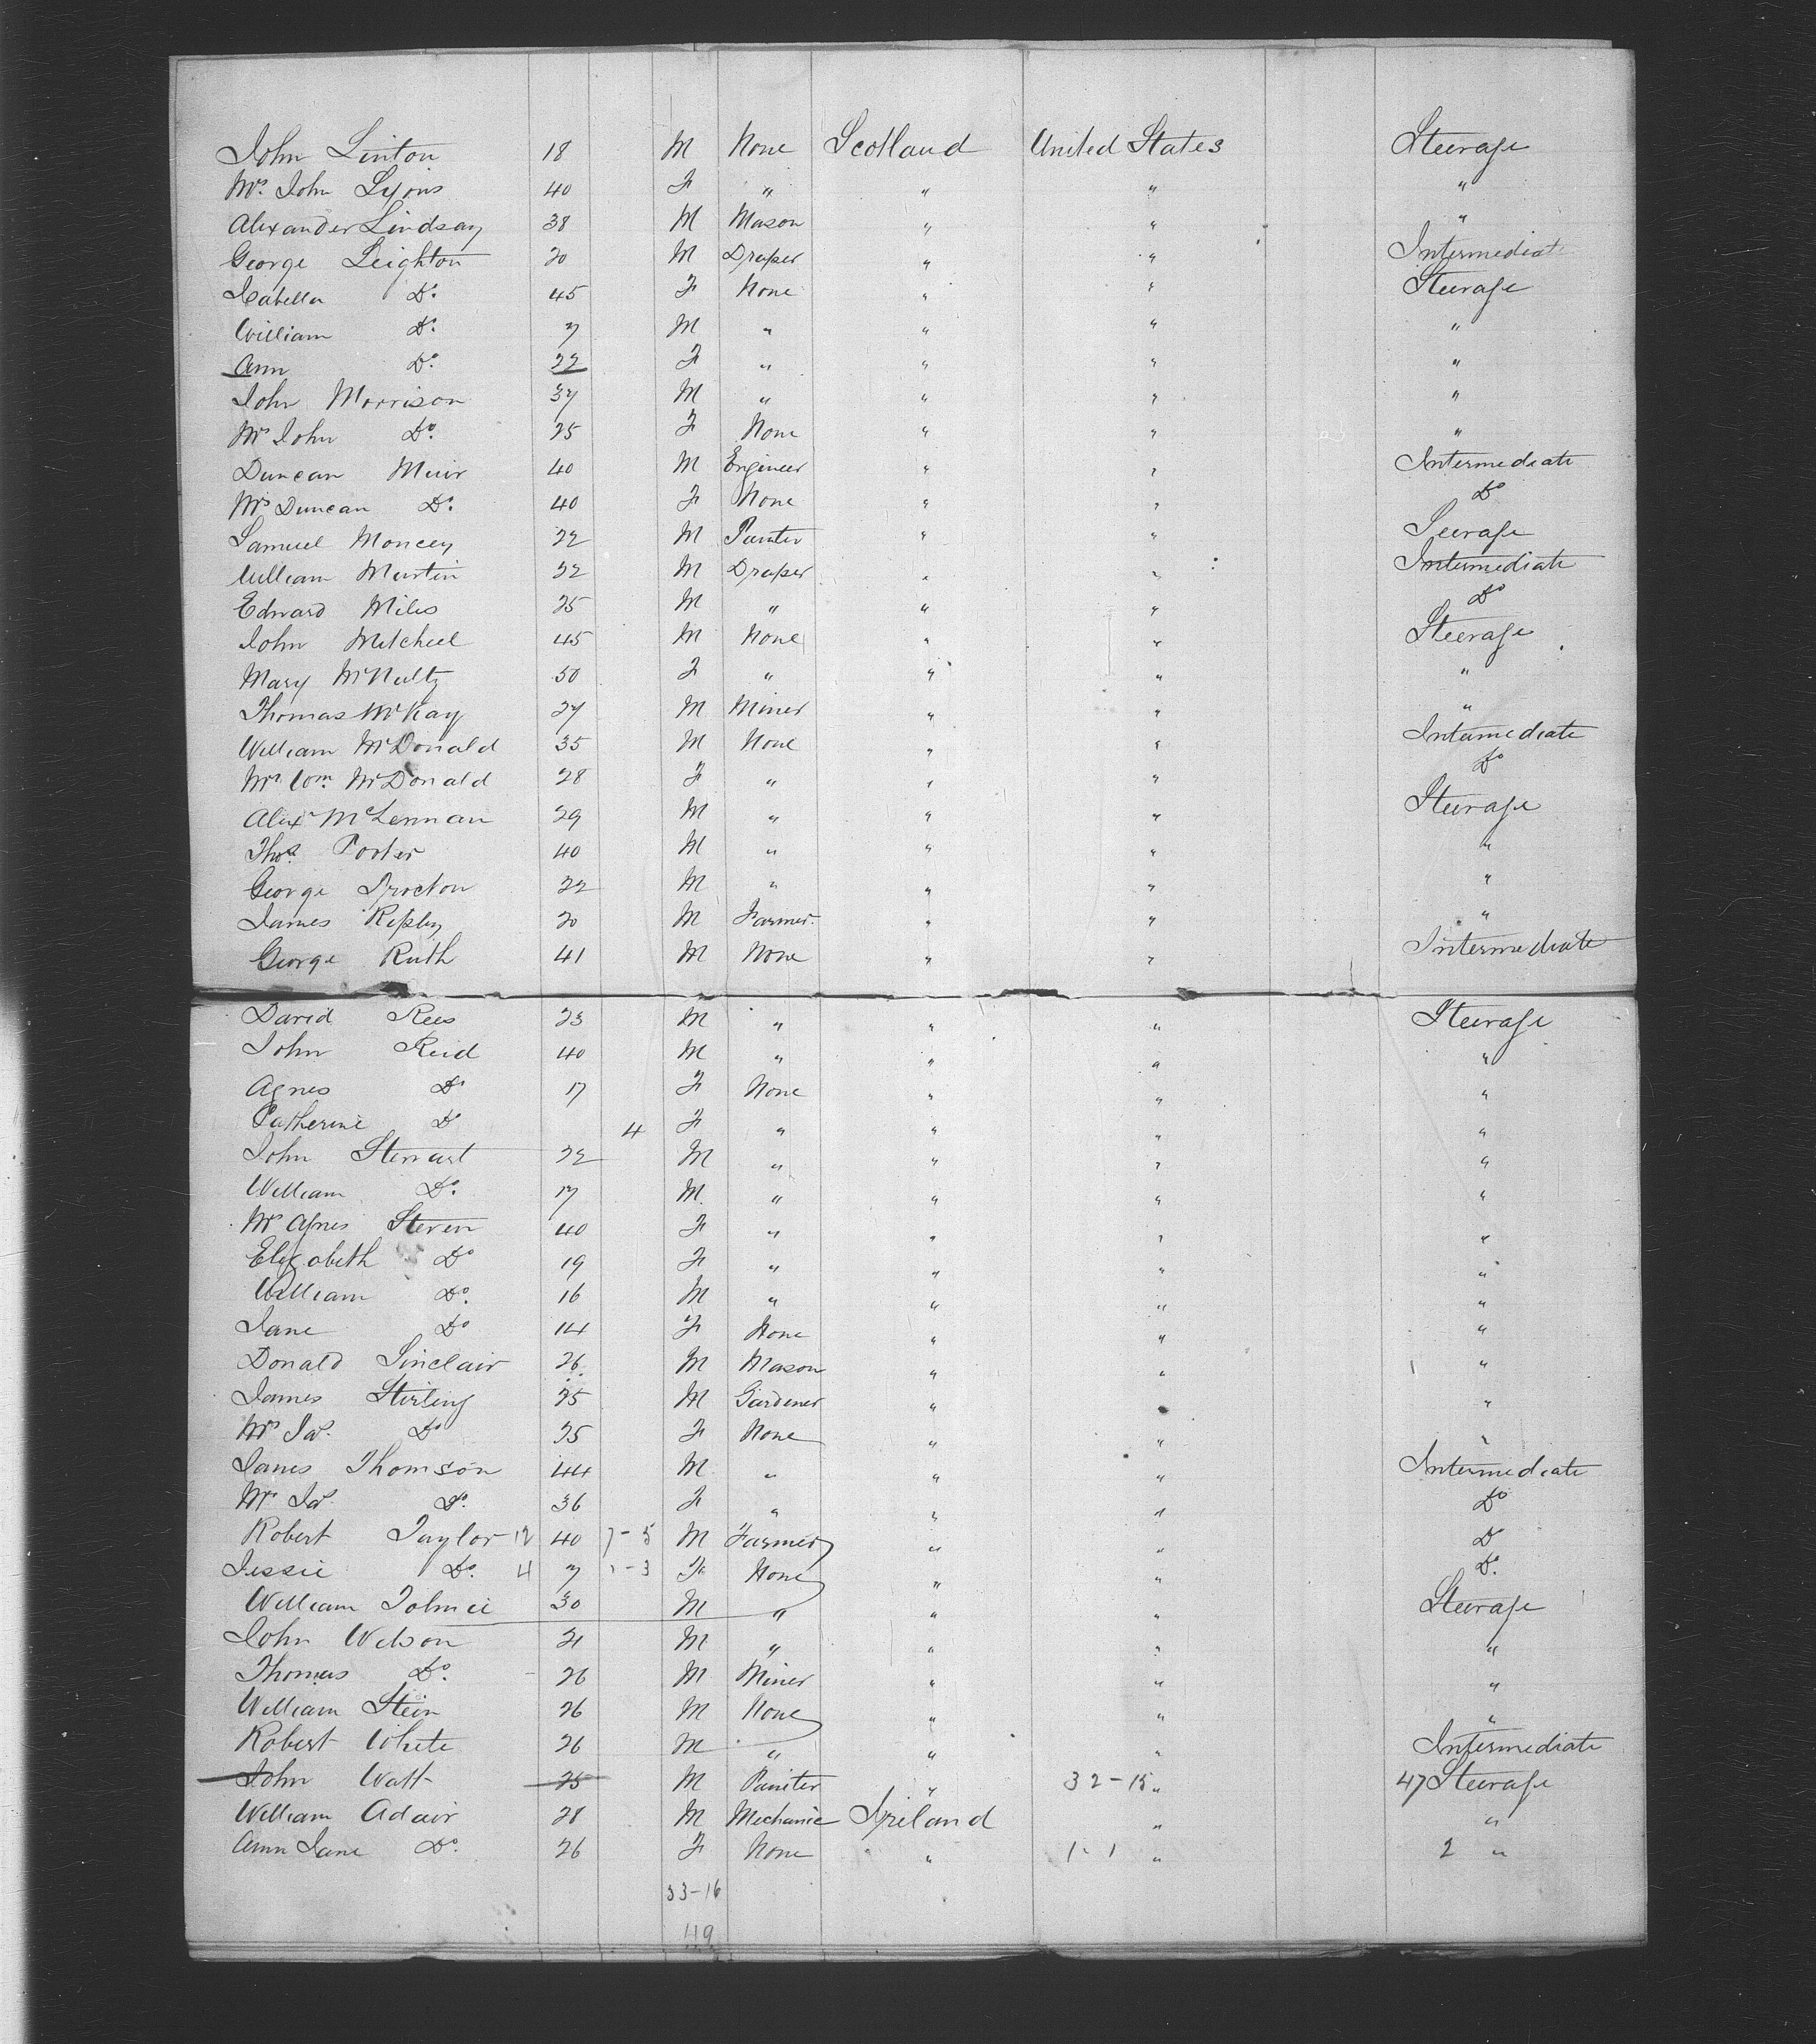 John Linton 18 M None Scotland United States Steerage
Mrs. John Lyons 40 F " " " "
Alexander Lindsay 38 M Mason " " "
George Leighton 20 M Draper " " Intermediate
Isabella Do. 45 F None " " Steerage
William Do. 7 M " " " "
Ann Do. 22 F " " " "
John Morrison 37 M " " " "
Mrs John Do. 25 F None " " "
Duncan Muir 40 M Engineer " " Intermediate
Mrs Duncan Do. 40 F None " " Do
Samuel Moncey 22 M Painter " " Steerage
William Martin 32 M Draper " " Intermediate
Edward Miles 25 M " " " Do
John Mitchell 45 M None " " Steerage
Mary McNulty 50 F " " " "
Thomas McKay 27 M Miner " " "
William McDonald 35 M None " " Intermediate
Mrs Wm. McDonald 28 F " " " Do
Alexr McLennan 29 M " " " Steerage
Thos. Porter 40 M " " " "
George Procton 22 M " " " "
James Ripley 20 M Farmer " " "
George Ruth 41 M None " " Intermediate
David Rees 23 M " " " Steerage
John Reid 40 M " " " "
Agnes Do 17 F None " " "
Catherine Do 4 F " " " "
John Stewart 22 M " " " "
William Do. 17 M " " " "
Mrs Agnes Steven 40 F " " " "
Elizabeth Do 19 F " " " "
William Do. 16 M " " " "
Jane Do 14 F None " " "
Donald Sinclair 26 M Mason " " "
James Stirling 25 M Gardener " " "
Mrs Jas. Do 25 F None " " "
James Thomson 44 M " " " Intermediate
Mrs Jas. Do. 36 F " " " Do
Robert Taylor 12 40 7-5 M Farmer " " Do
Jessie Do. 4 7 1-3 F None " " Do.
William Tolmie 30 M " " " Steerage
John Wilson 21 M " " " "
Thomas Do. 26 M Miner " " "
William Stein 26 M None " " "
Robert White 26 M " " " Intermediate
John Watt 25 M Painter " 32-15 " 47 Steerage
William Adair 28 M Mechanic Ireland " "
Ann Jane Do. 26 F None " 1-1 " 2 "
33-16
49